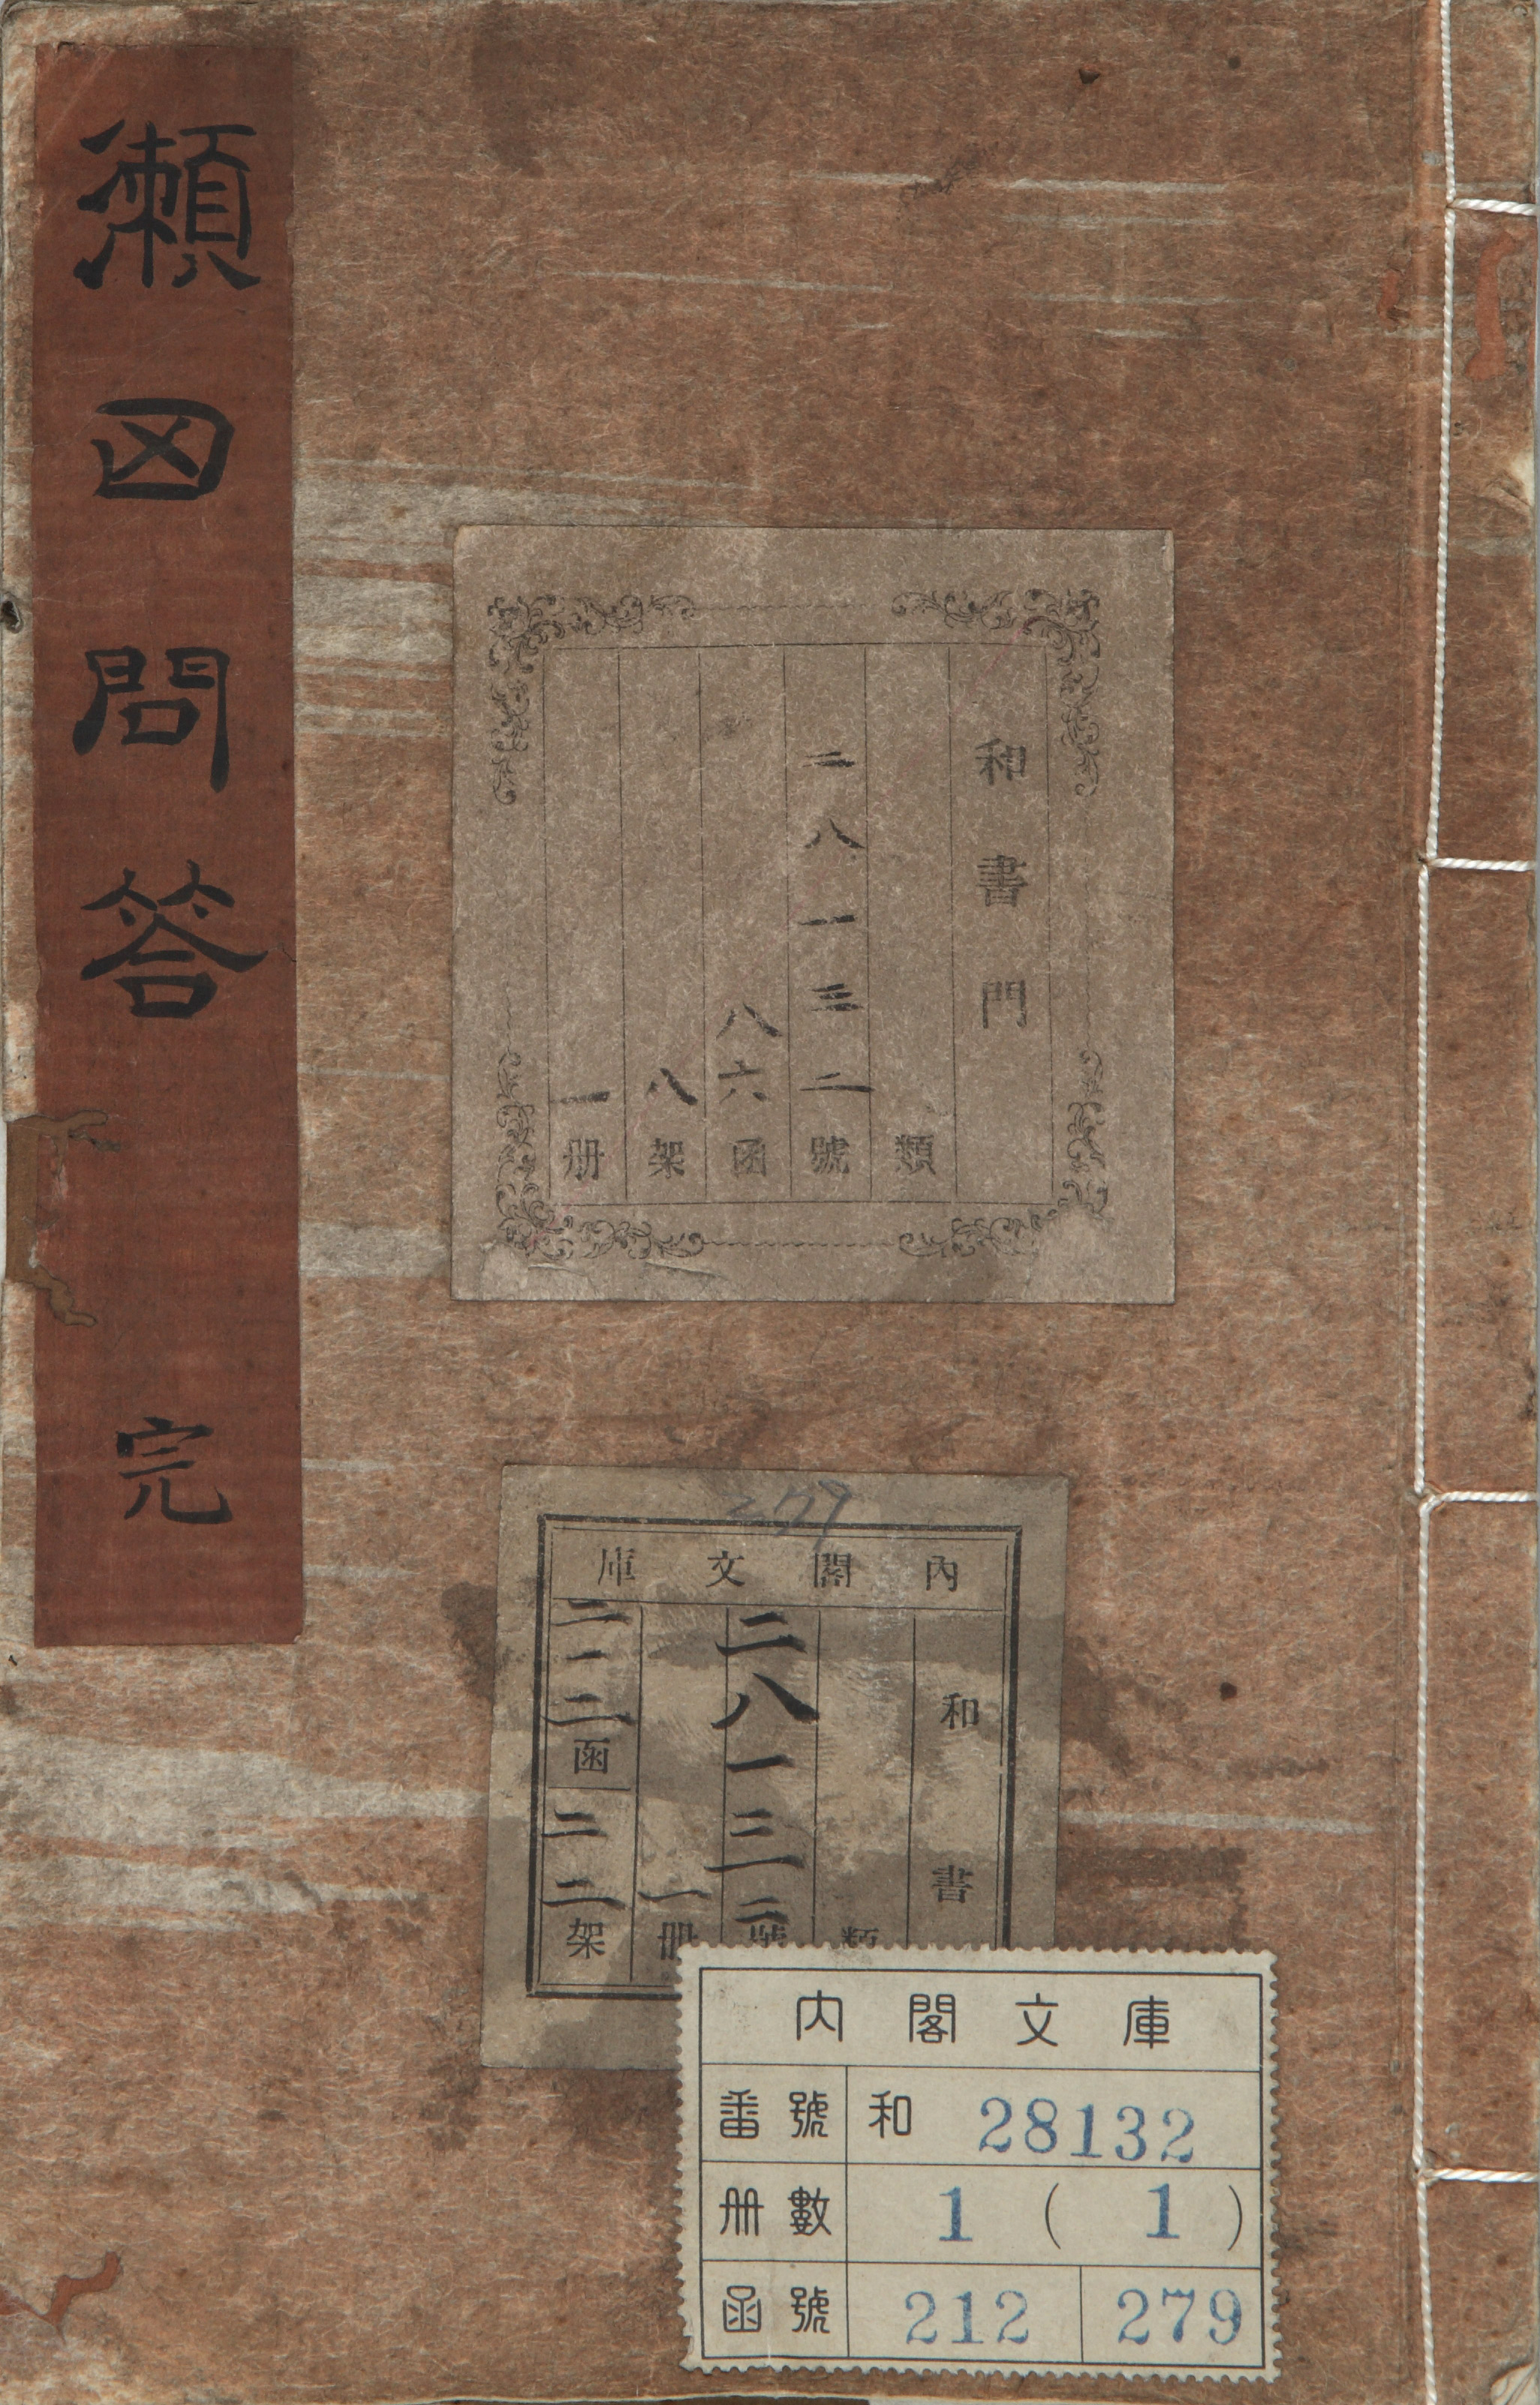 瀨田問答 完
和書門
類
二八一三二號
八六函
八架
一册
279
內閣文庫
和書
類
二八一三二號
一册
二一二函
二二架
内閣文庫
番號 和 28132
册數 1 ( 1 )
函號 212 279